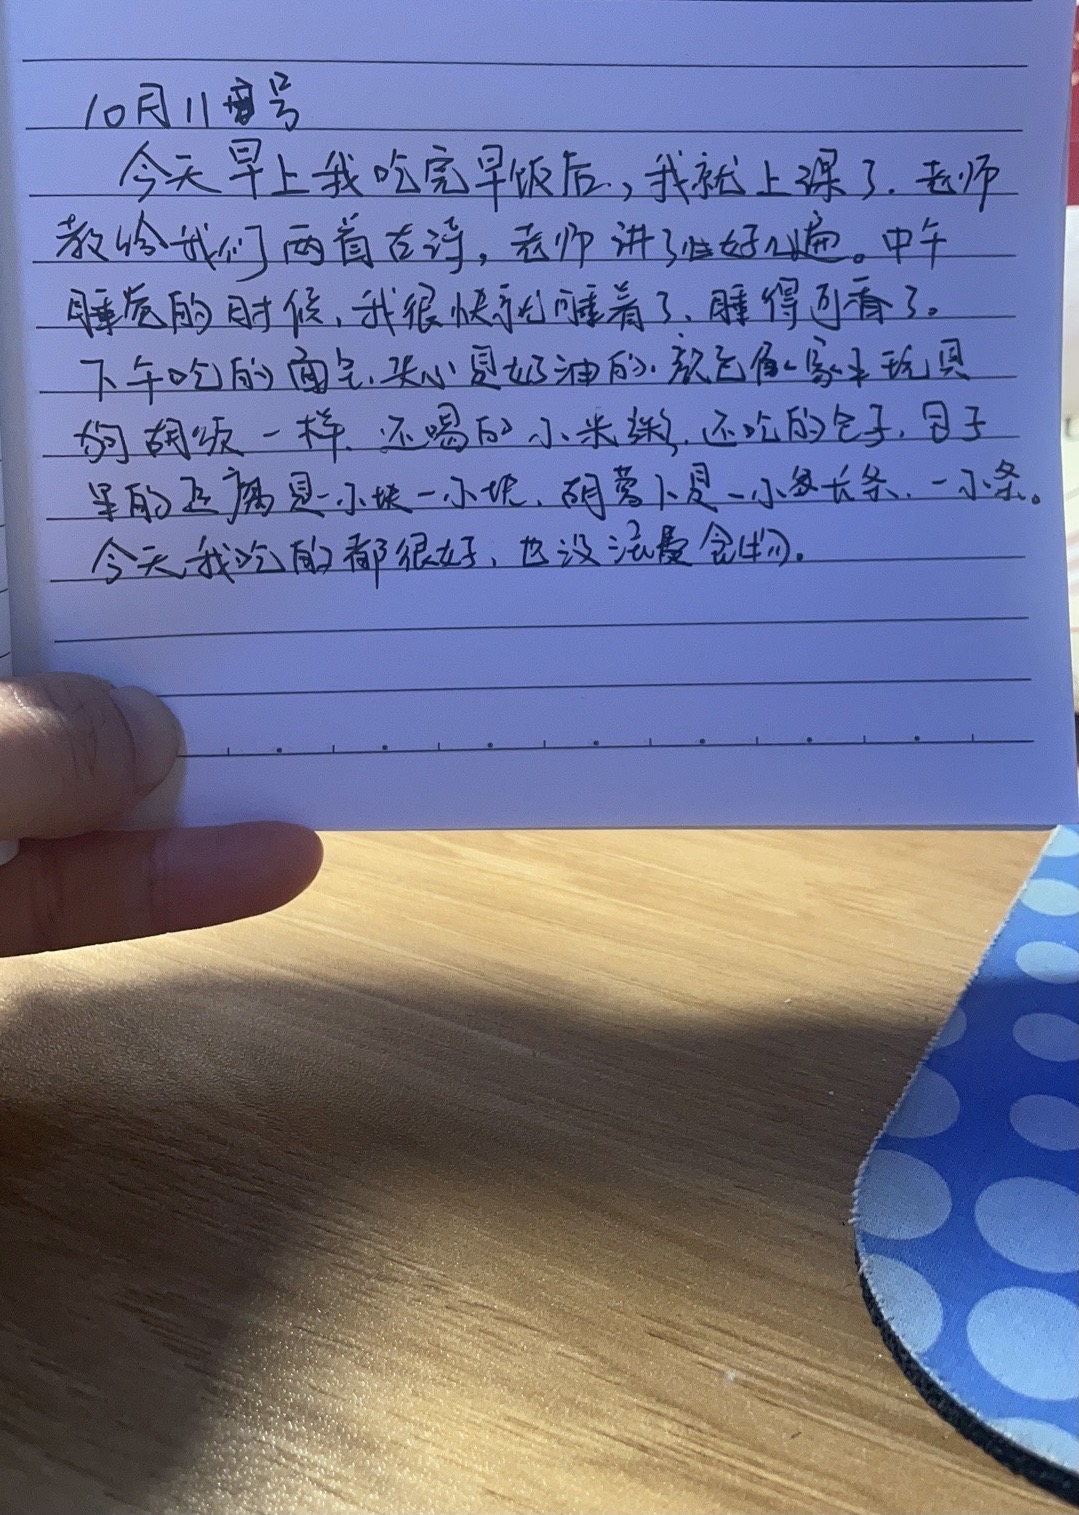 10月11号
今天早上我吃完早饭后,我就上课了.老师
教给我们两首古诗,老师讲了好几遍。中午
睡觉的时候,我很快就睡着了、睡得可香了。
下午吃的面包、夹心是奶油的、颜色像家里玩具
狗胡须一样、还喝的小米粥,还吃的包子、包子
里的豆腐是一小块一小块、胡萝卜是一小长条、一小条。
今天我吃的都很好、也没浪费食物。